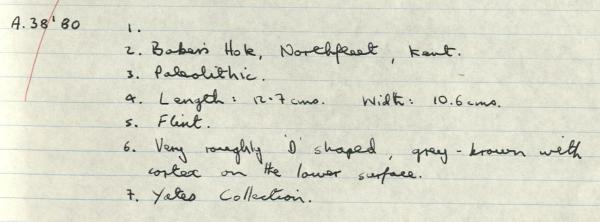 A.38'80
1.
2. Baker's Hole, Northfleet, Kent.
3. Paleolithic.
4. Length: 12.7 cms. Width: 10.6 cms.
5. Flint.
6. Very roughly 'D' shaped, grey-brown with
cortex on the lower surface.
7. Yates Collection.